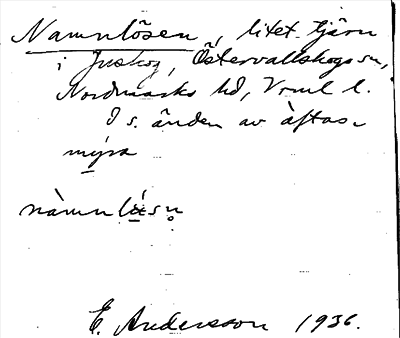 Namnlösen, litet tjärn
i Juskog, Östervallskogs sn,
Nordmarks hd, Vrml l.
I s. änden av àftas-
mýra
nàmnlǻsn̥
E. Andersson 1936.